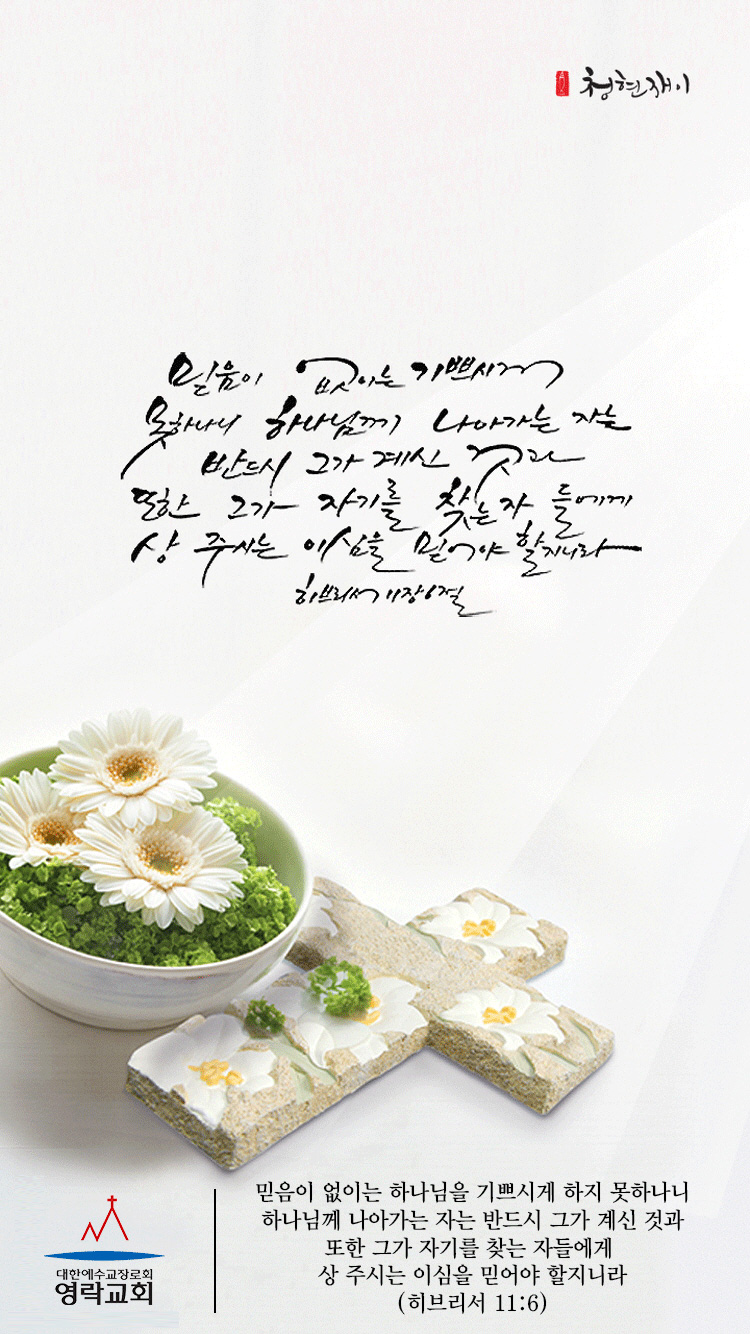 청현재이
믿음이 없이는 기쁘시게
못하나니 하나님께 나아가는 자는
반드시 그가 계신 것과
또한 그가 자기를 찾는 자들에게
상 주시는 이심을 믿어야 할지니라
히브리서 11장 6절
믿음이 없이는 하나님을 기쁘시게 하지 못하나니
하나님께 나아가는 자는 반드시 그가 계신 것과
또한 그가 자기를 찾는 자들에게
상 주시는 이심을 믿어야 할지니라
(히브리서 11:6)
대한예수교장로회
영락교회